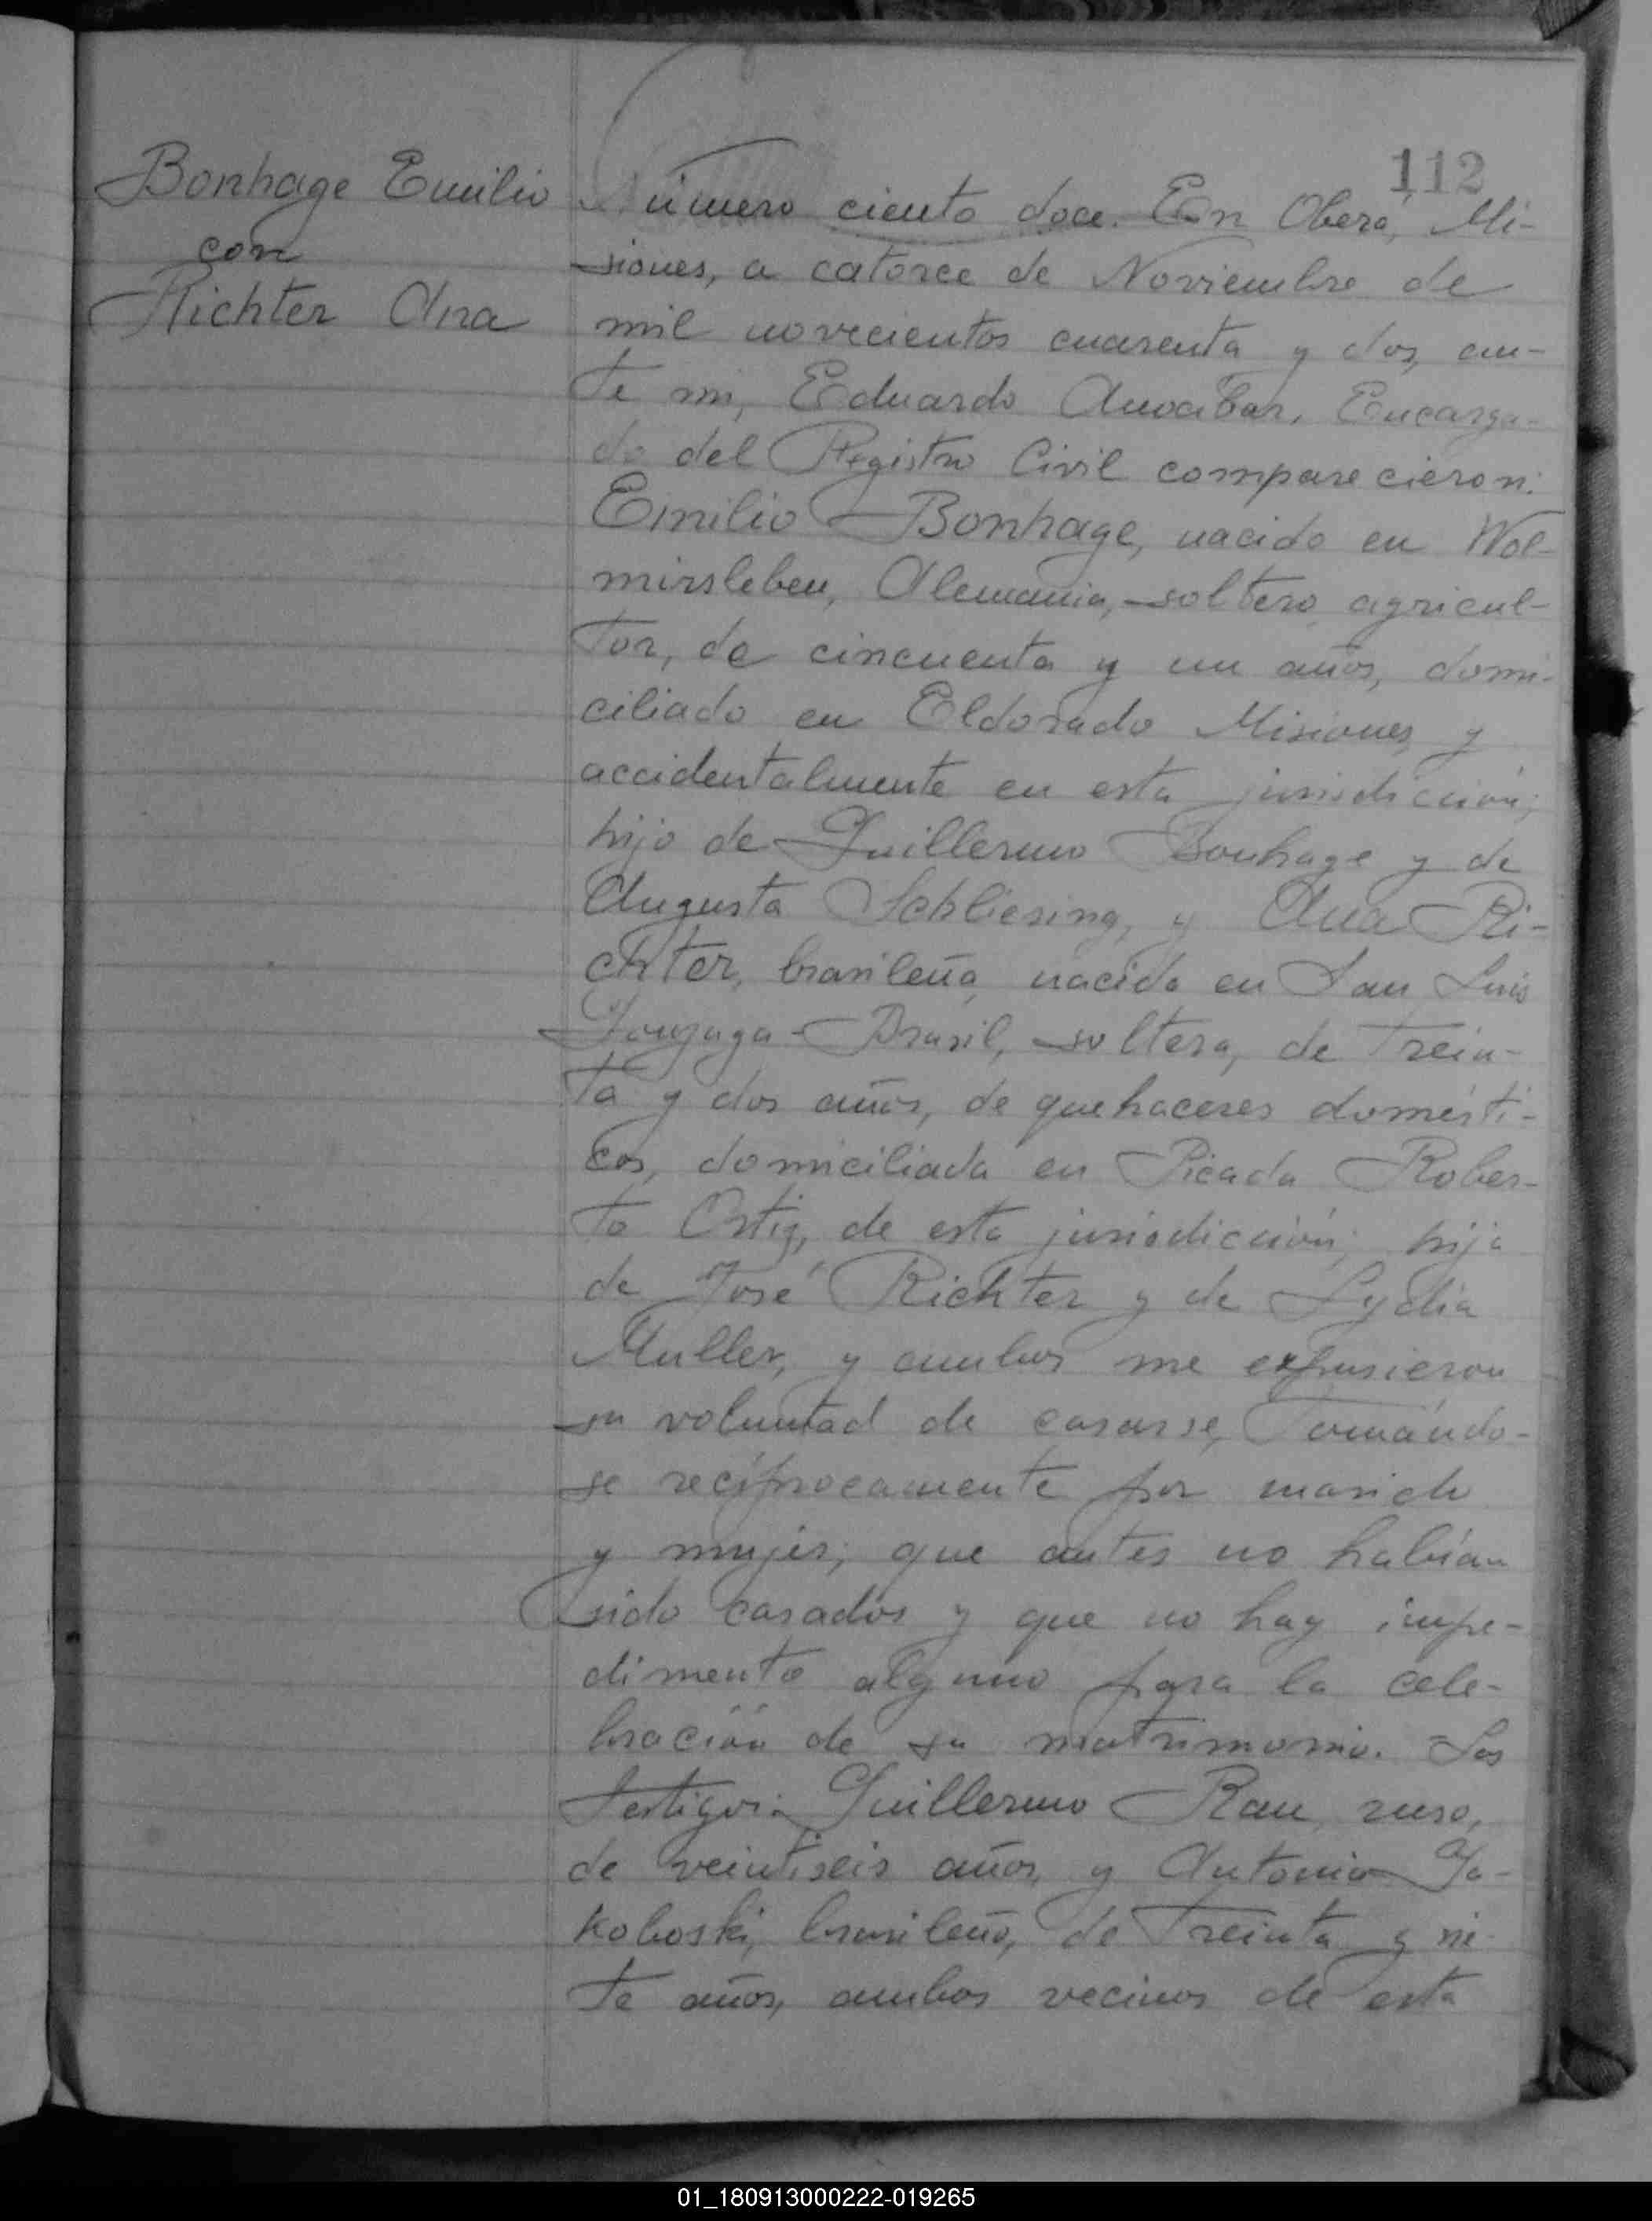 112
Bonhage Emilio
con
Richter Ana
Número ciento doce. En Oberá, Mi-
siones, a catorce de Noviembre de
mil novecientos cuarenta y dos, an-
te mi, Eduardo Encarga-
do del Registro Civil comparecieron:
Emilio Bonhage, nacido en Wol-
mirsleben, Alemania, soltero, agricul-
tor, de cincuenta y un años, domi-
ciliado en Eldorado Misiones y
accidentalmente en esta jurisdicción;
hijo de Guillermo Bonhage y de
Augusta Schliesing, y Ana Ri-
chter, brasileña, nacida en San Luis
Gonzaga - Brasil, soltera, de trein-
ta y dos años, de quehaceres domésti-
cos, domiciliada en Picada Rober-
to Ortiz, de esta jurisdicción; hija
de José Richter y de Lydia
Muller, y ambos me expusieron
su voluntad de casarse, tomándo-
se recíprocamente por marido
y mujer; que antes no habían
sido casados y que no hay impe-
dimento alguno para la cele-
bración de su matrimonio. Los
testigos: Guillermo Rau, ruso,
de veintiseis años, y Antonio Ja-
koboski, brasileño, de treinta y sie-
te años, ambos vecinos de esta
01_180913000222-019265